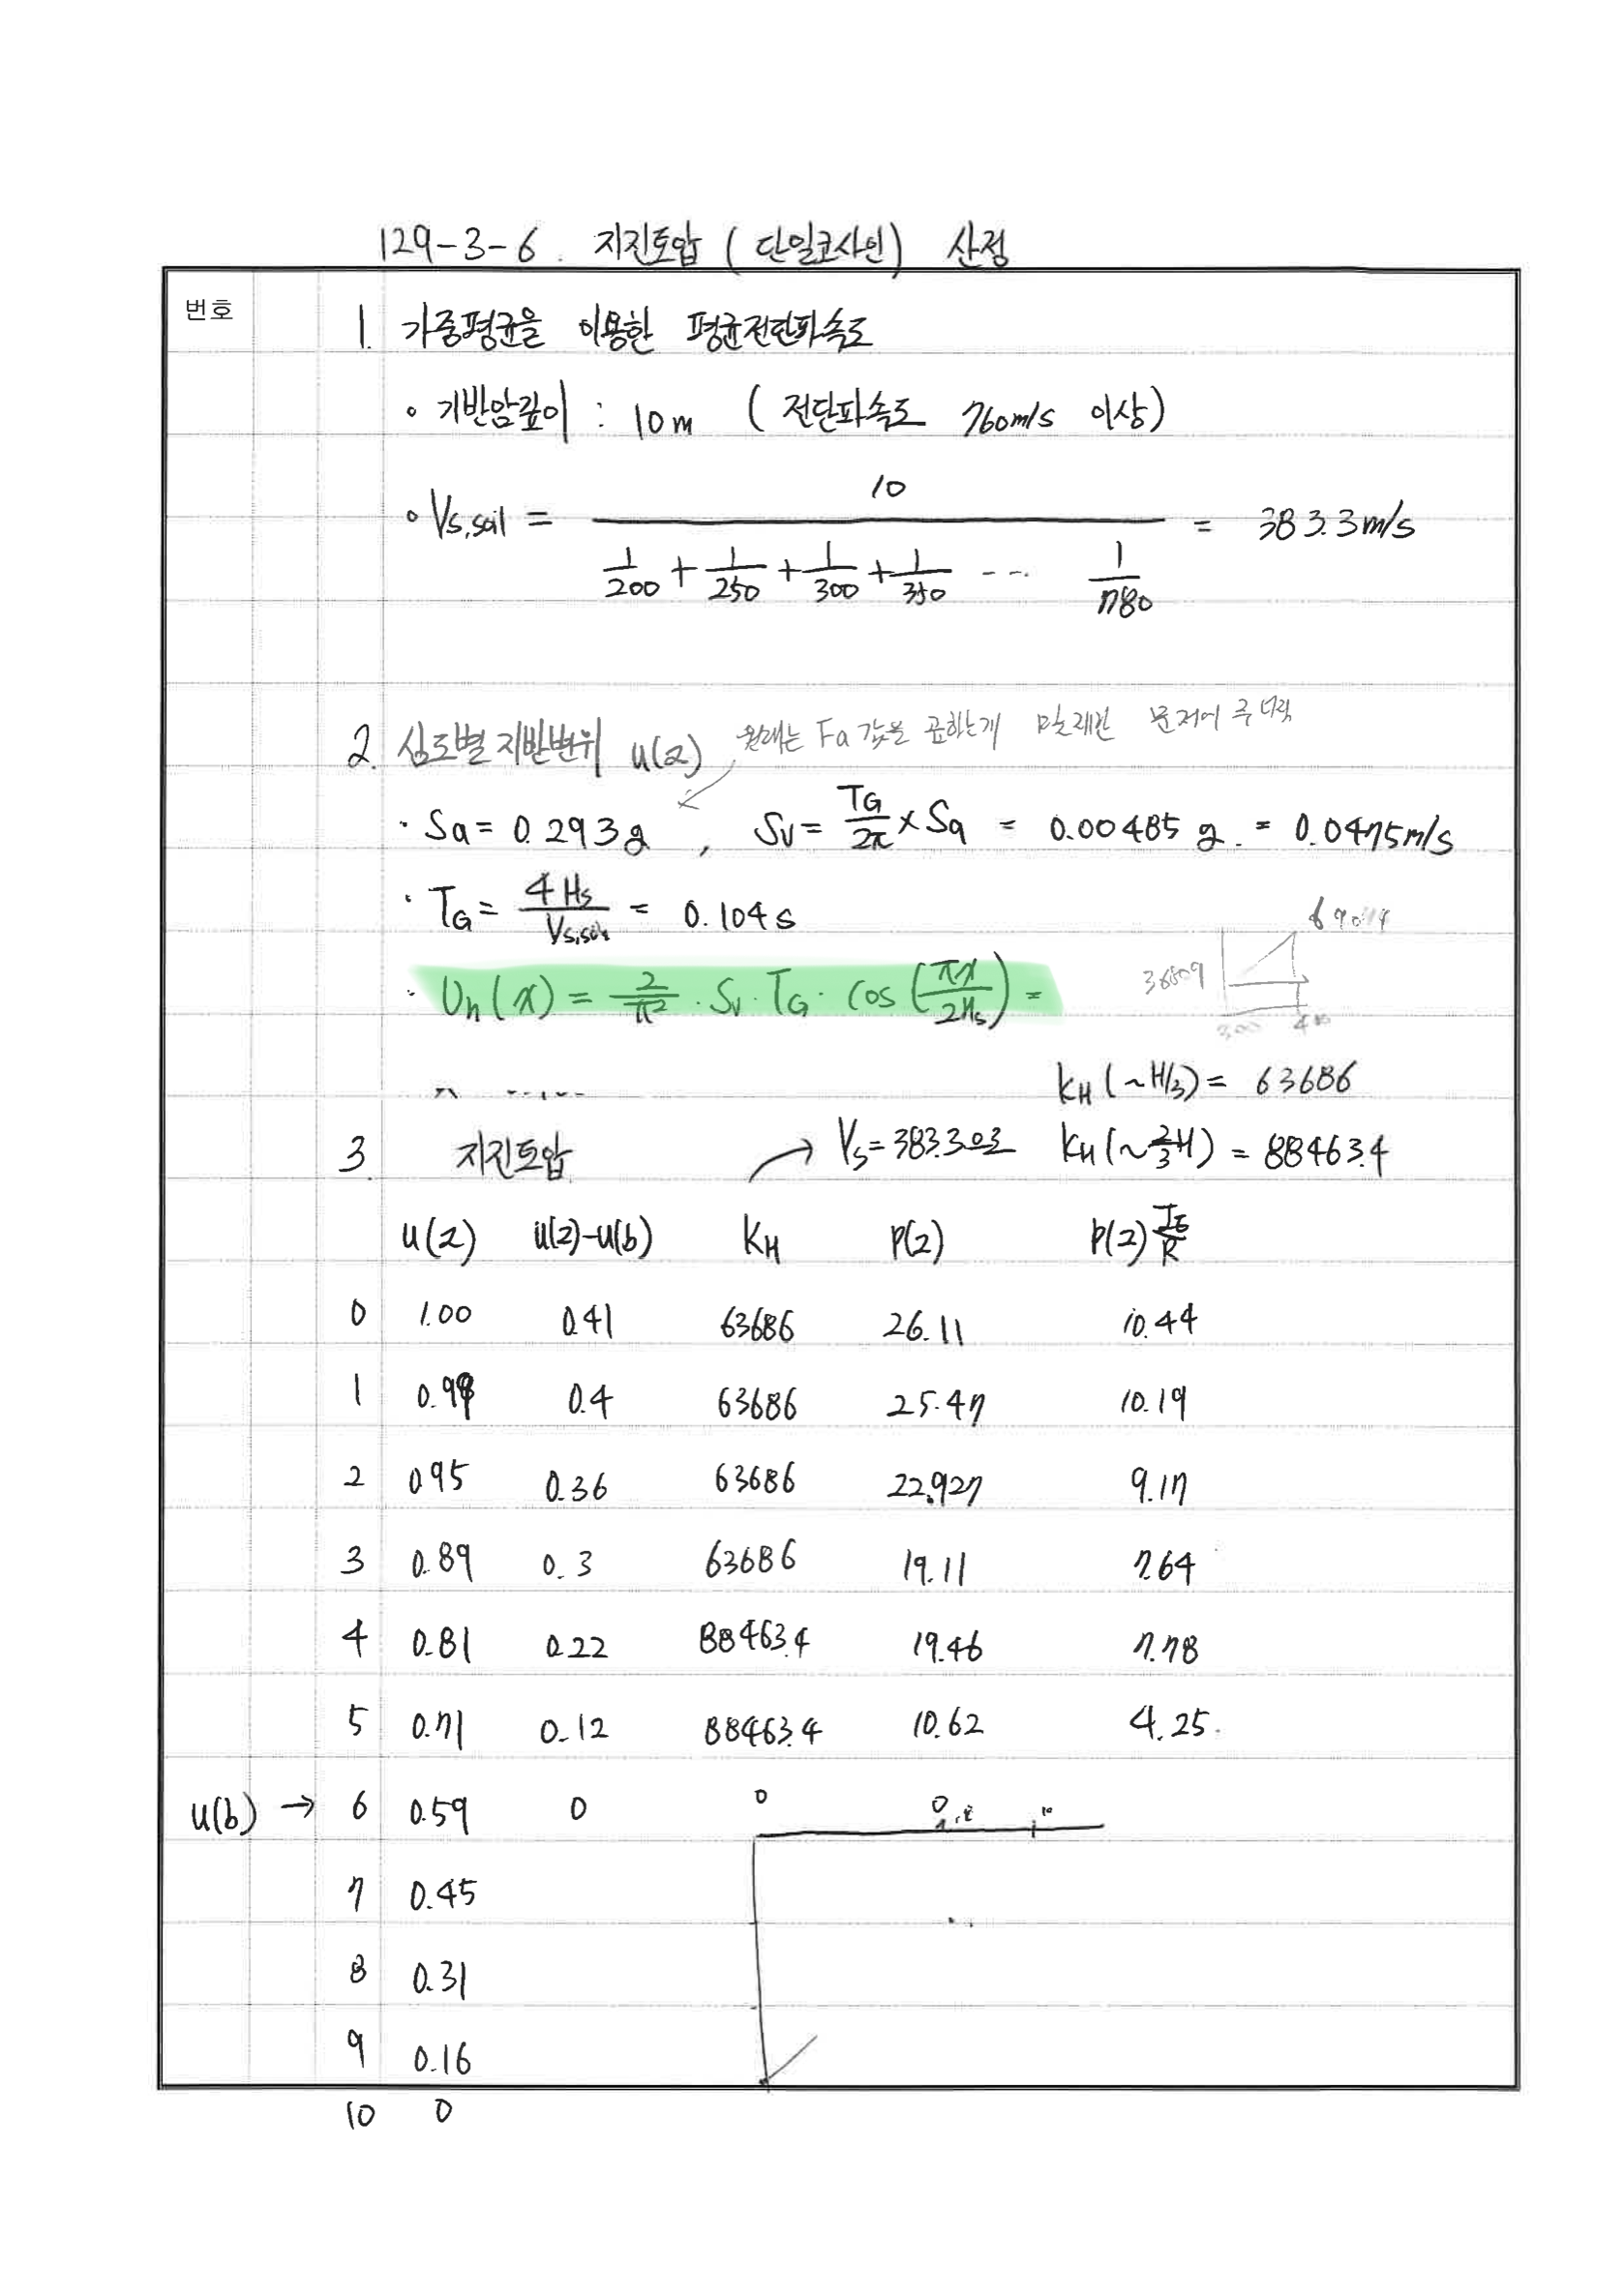 129-3-6. 지진토압 (단일코사인) 산정
번호
1. 가중평균을 이용한 평균전단파속도
∘ 기반암깊이 : 10m (전단파속도 760m/s 이상)
∘ Vs,soil = 10 / (1/200 + 1/250 + 1/300 + 1/350 ... 1/780) = 383.3m/s
2. 심도별 지반변위 u(z) 원래는 Fa 값을 곱하는게 문제에
· Sa = 0.293g , Sv = TG/2π × Sa = 0.00485 g. = 0.0475m/s
· TG = 4Hs/Vs,soil = 0.104s
· Uh(x) = 2/π² · Sv · TG · cos(πx/2Hs) =
36809
300
KH(~H/3) = 63686
3. 지진토압 → Vs=383.3으로 KH(~2/3H) = 88463.4
u(z) u(z)-u(b) KH P(z) P(z) IE/R
0 1.00 0.41 63686 26.11 10.44
1 0.98 0.4 63686 25.47 10.19
2 0.95 0.36 63686 22.927 9.17
3 0.89 0.3 63686 19.11 7.64
4 0.81 0.22 88463.4 19.46 7.78
5 0.71 0.12 88463.4 10.62 4.25
u(b) → 6 0.59 0 0 0
10
7 0.45
8 0.31
9 0.16
10 0